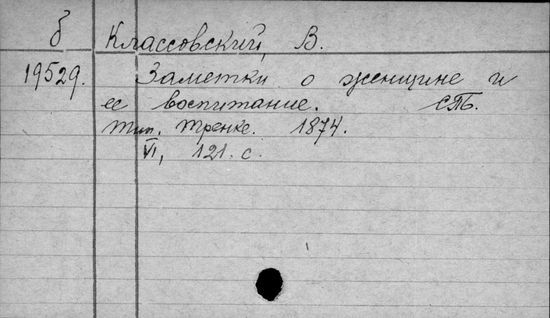 б Классовский, В.
19529. Заметки о женщине и
ее воспитание. СПб.
тип. Тренке. 1874.
VI, 121. с.